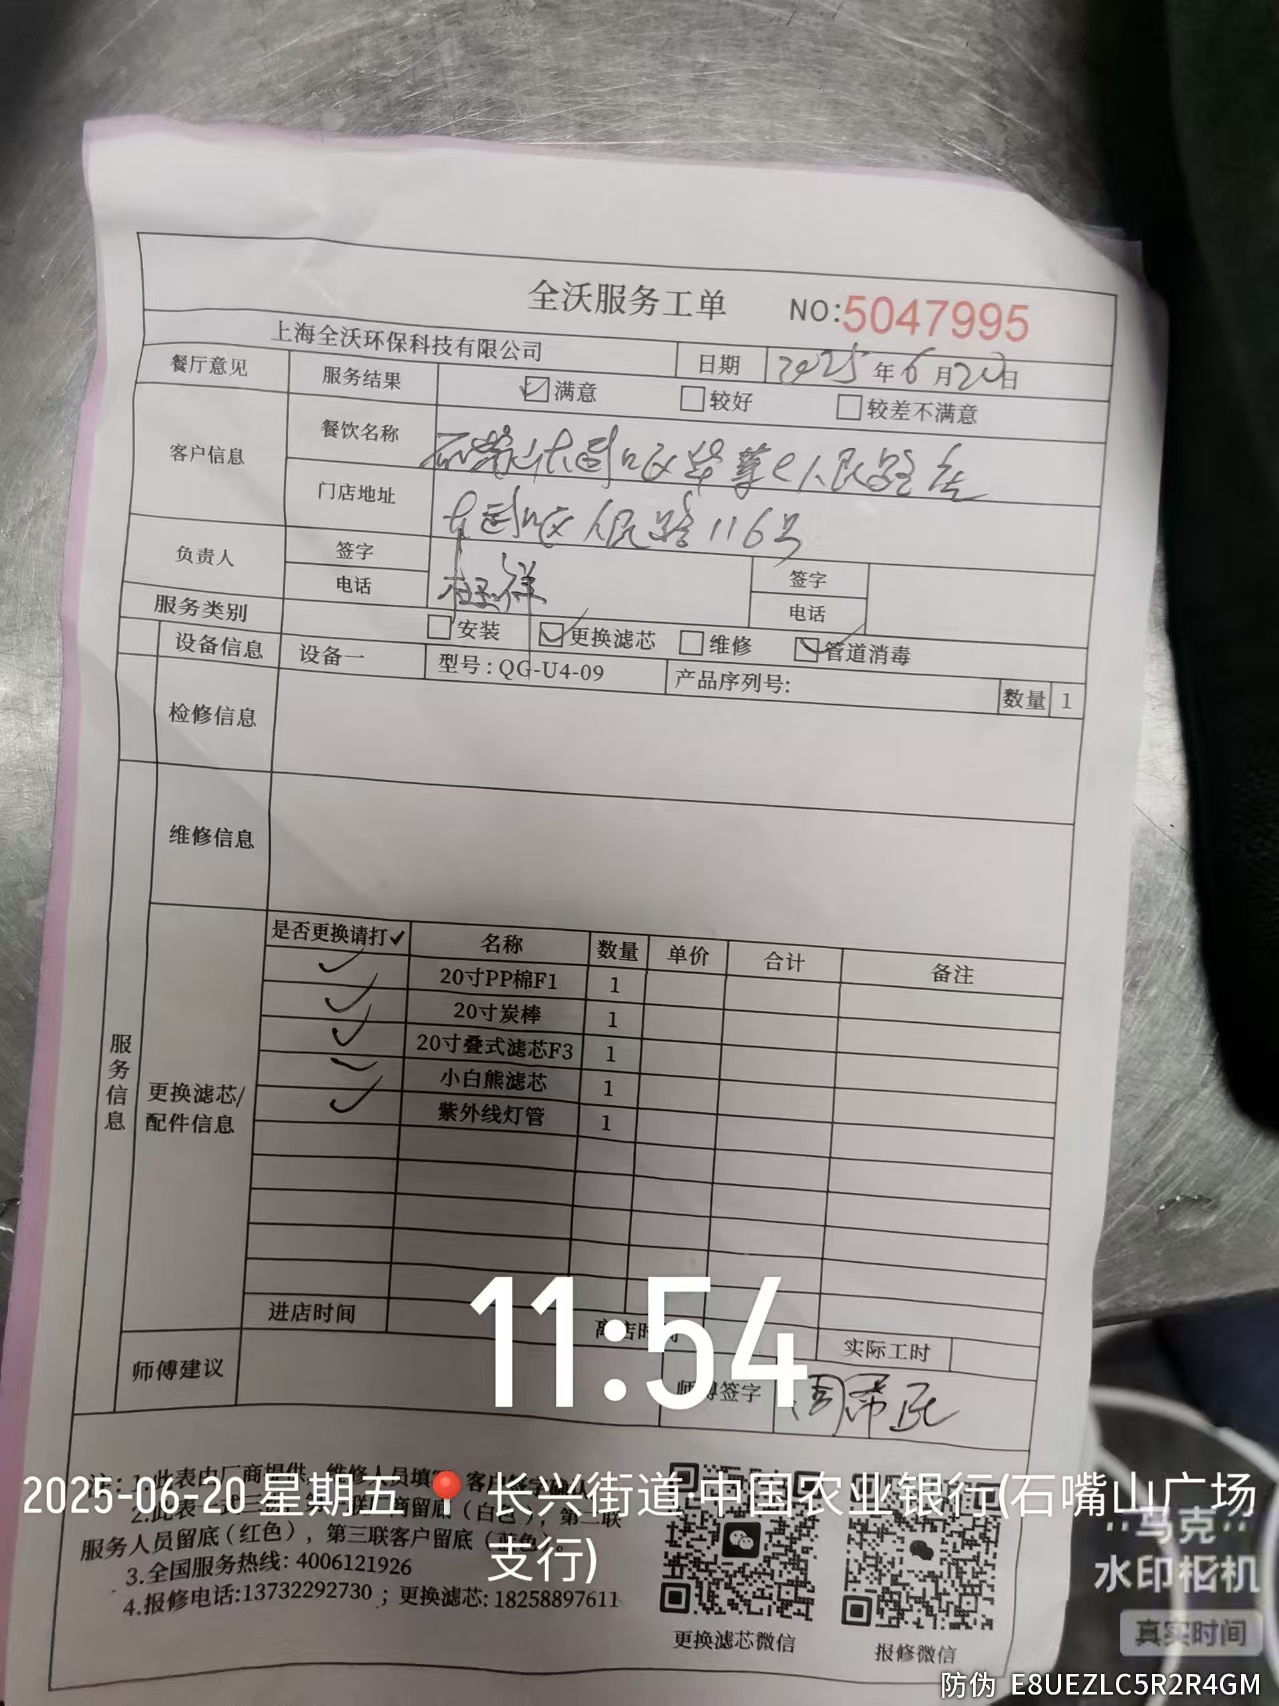 全沃服务工单 NO:5047995
上海全沃环保科技有限公司 日期 2025年6月20日
餐厅意见 服务结果 ☑满意 □较好 □较差不满意
客户信息 餐饮名称 人民路店
门店地址 区人民路116号
负责人 签字 签字
电话 电话
服务类别 □安装 ☑更换滤芯 □维修 ☑管道消毒
设备信息 设备一 型号:QG-U4-09 产品序列号: 数量 1
检修信息
维修信息
服务信息
更换滤芯/
配件信息
是否更换请打✓ 名称 数量 单价 合计 备注
✓ 20寸PP棉F1 1
✓ 20寸炭棒 1
✓ 20寸叠式滤芯F3 1
✓ 小白熊滤芯 1
✓ 紫外线灯管 1
进店时间 离店时间 实际工时
师傅建议 师傅签字
11:54
注:1.此表由厂商提供,维修人员填写,客户
2.此表一式三联,
服务人员留底(红色),第三联客户留底(蓝色)。
3.全国服务热线:4006121926
4.报修电话:13732292730;更换滤芯:18258897611
更换滤芯微信 报修微信
2025-06-20 星期五 长兴街道·中国农业银行(石嘴山广场
支行)
马克
水印相机
真实时间
防伪 E8UEZLC5R2R4GM